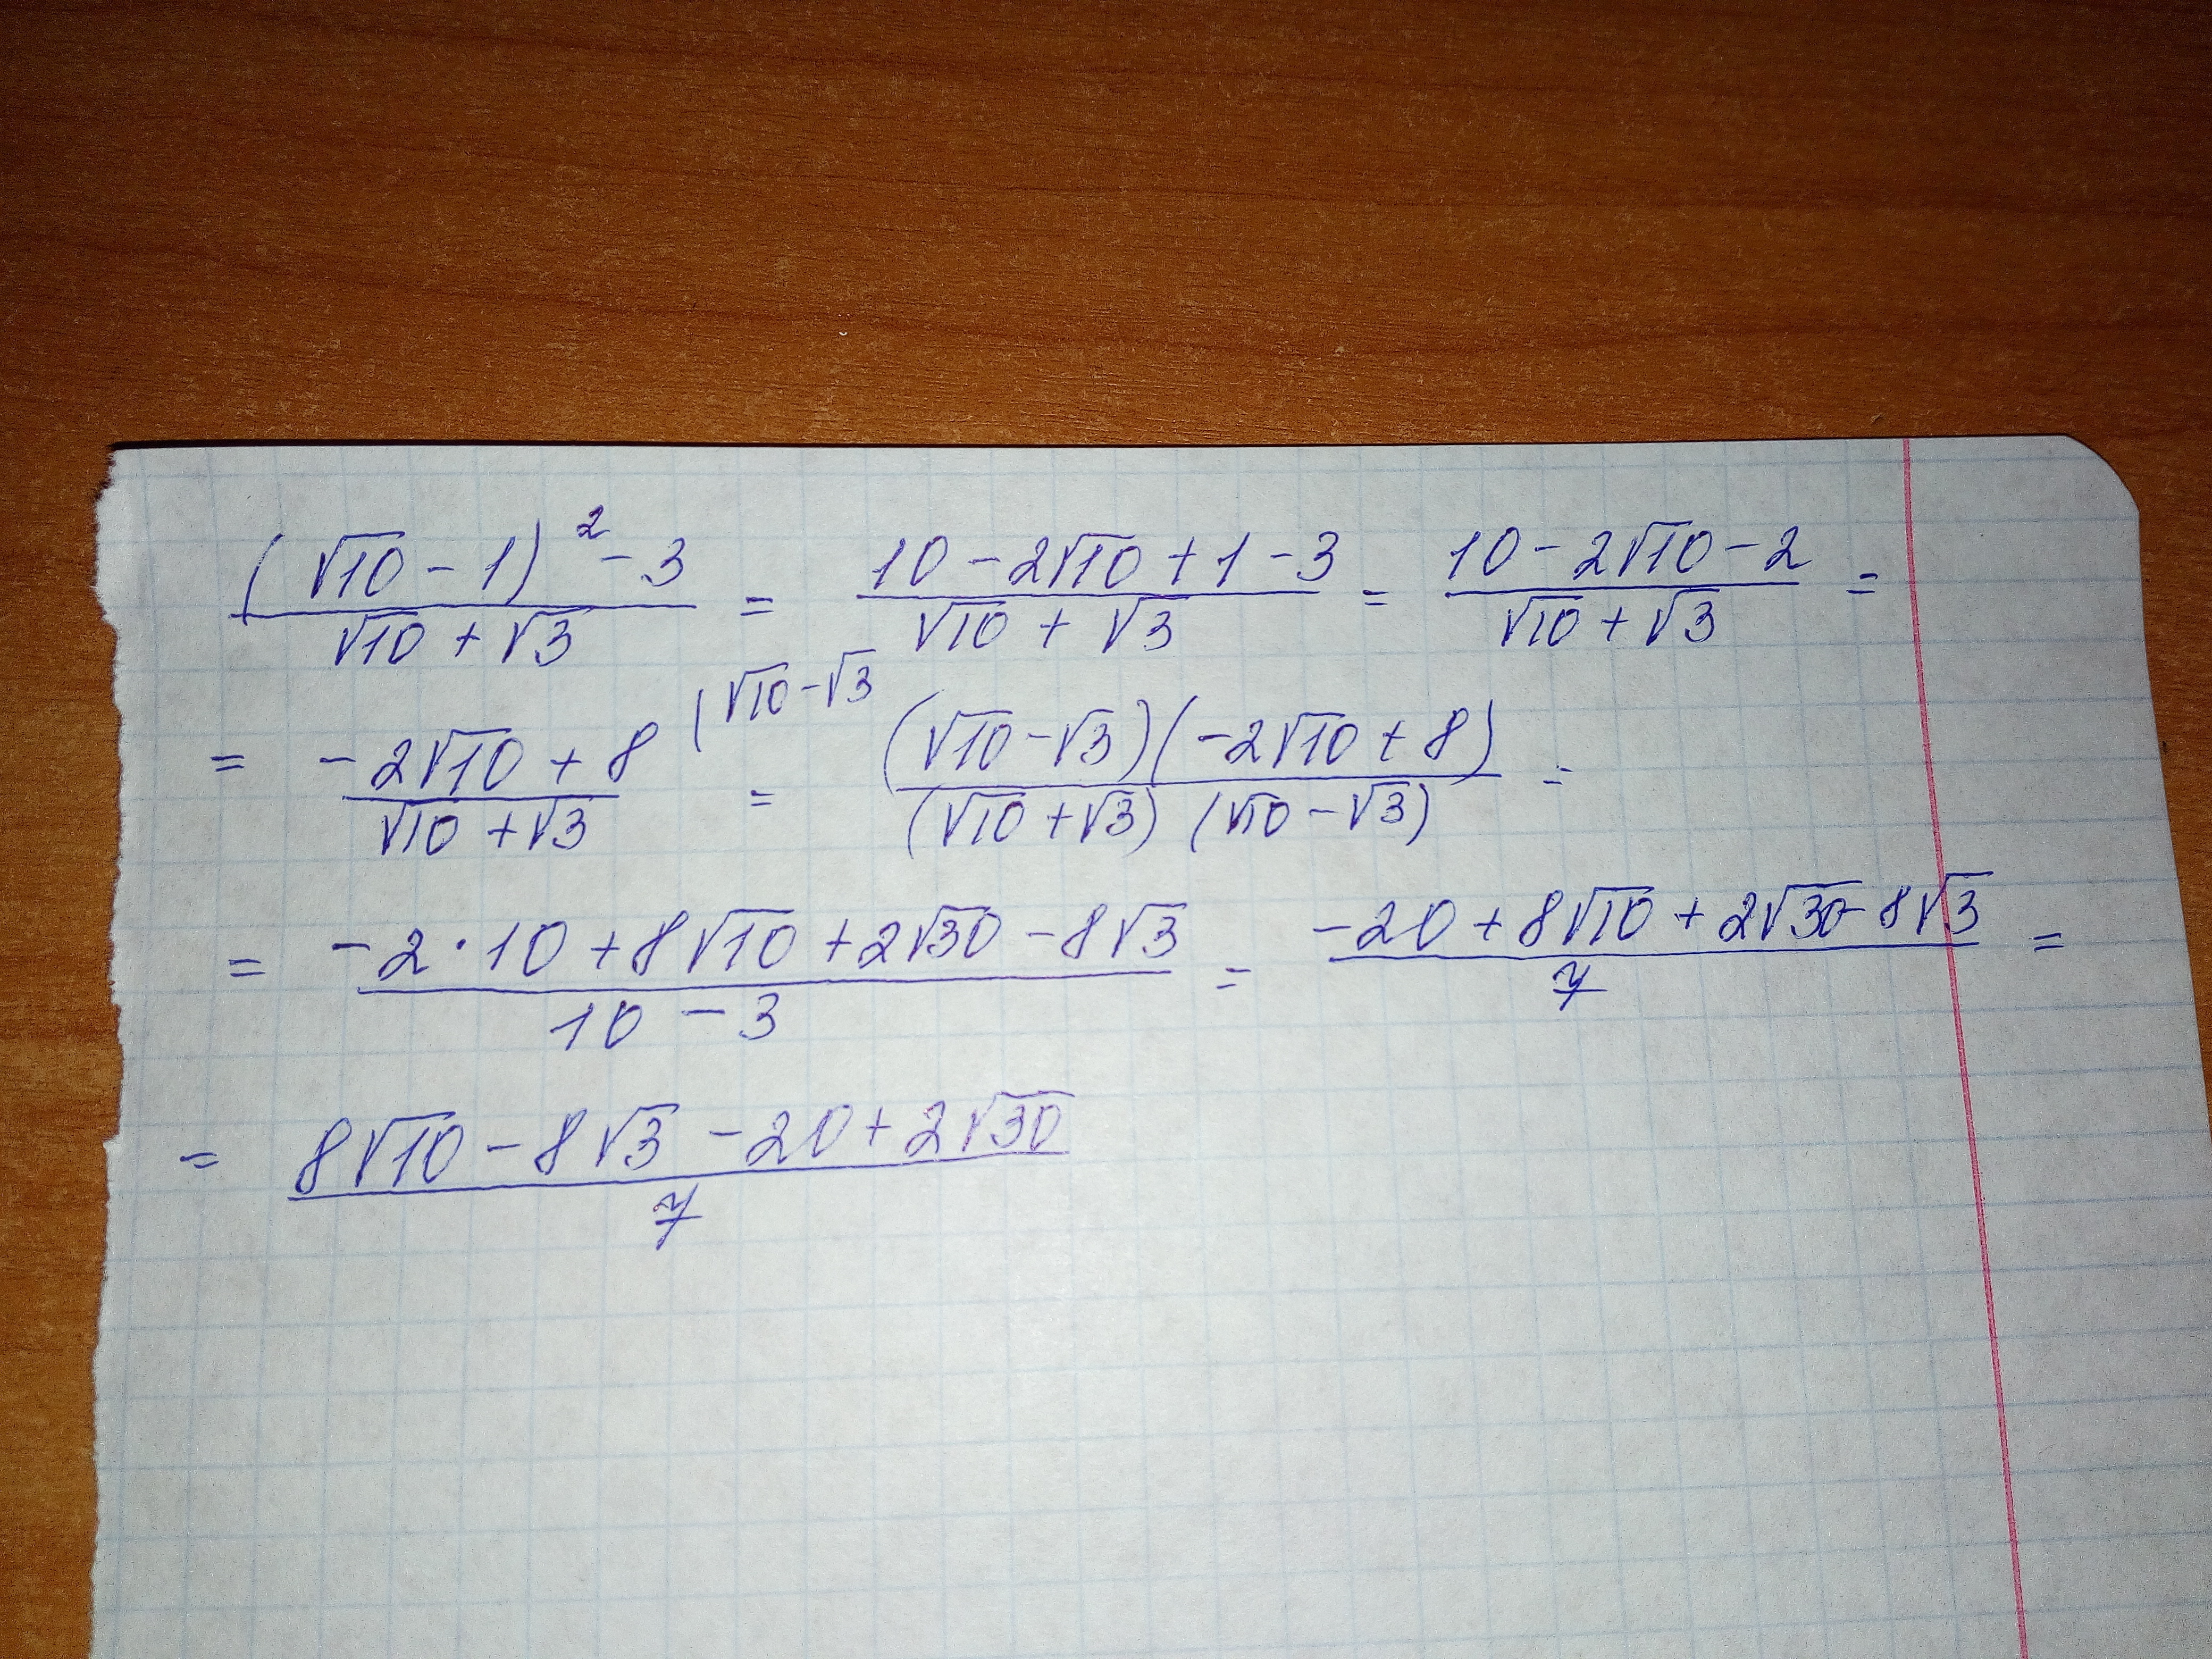 ((√10 - 1)² - 3)/(√10 + √3) = (10 - 2√10 + 1 - 3)/(√10 + √3) = (10 - 2√10 - 2)/(√10 + √3) =
= (-2√10 + 8)/(√10 + √3) (√10 - √3 = ((√10 - √3)(-2√10 + 8))/((√10 + √3)(√10 - √3)) =
= (-2·10 + 8√10 + 2√30 - 8√3)/(10 - 3) = (-20 + 8√10 + 2√30 - 8√3)/7 =
= (8√10 - 8√3 - 20 + 2√30)/7